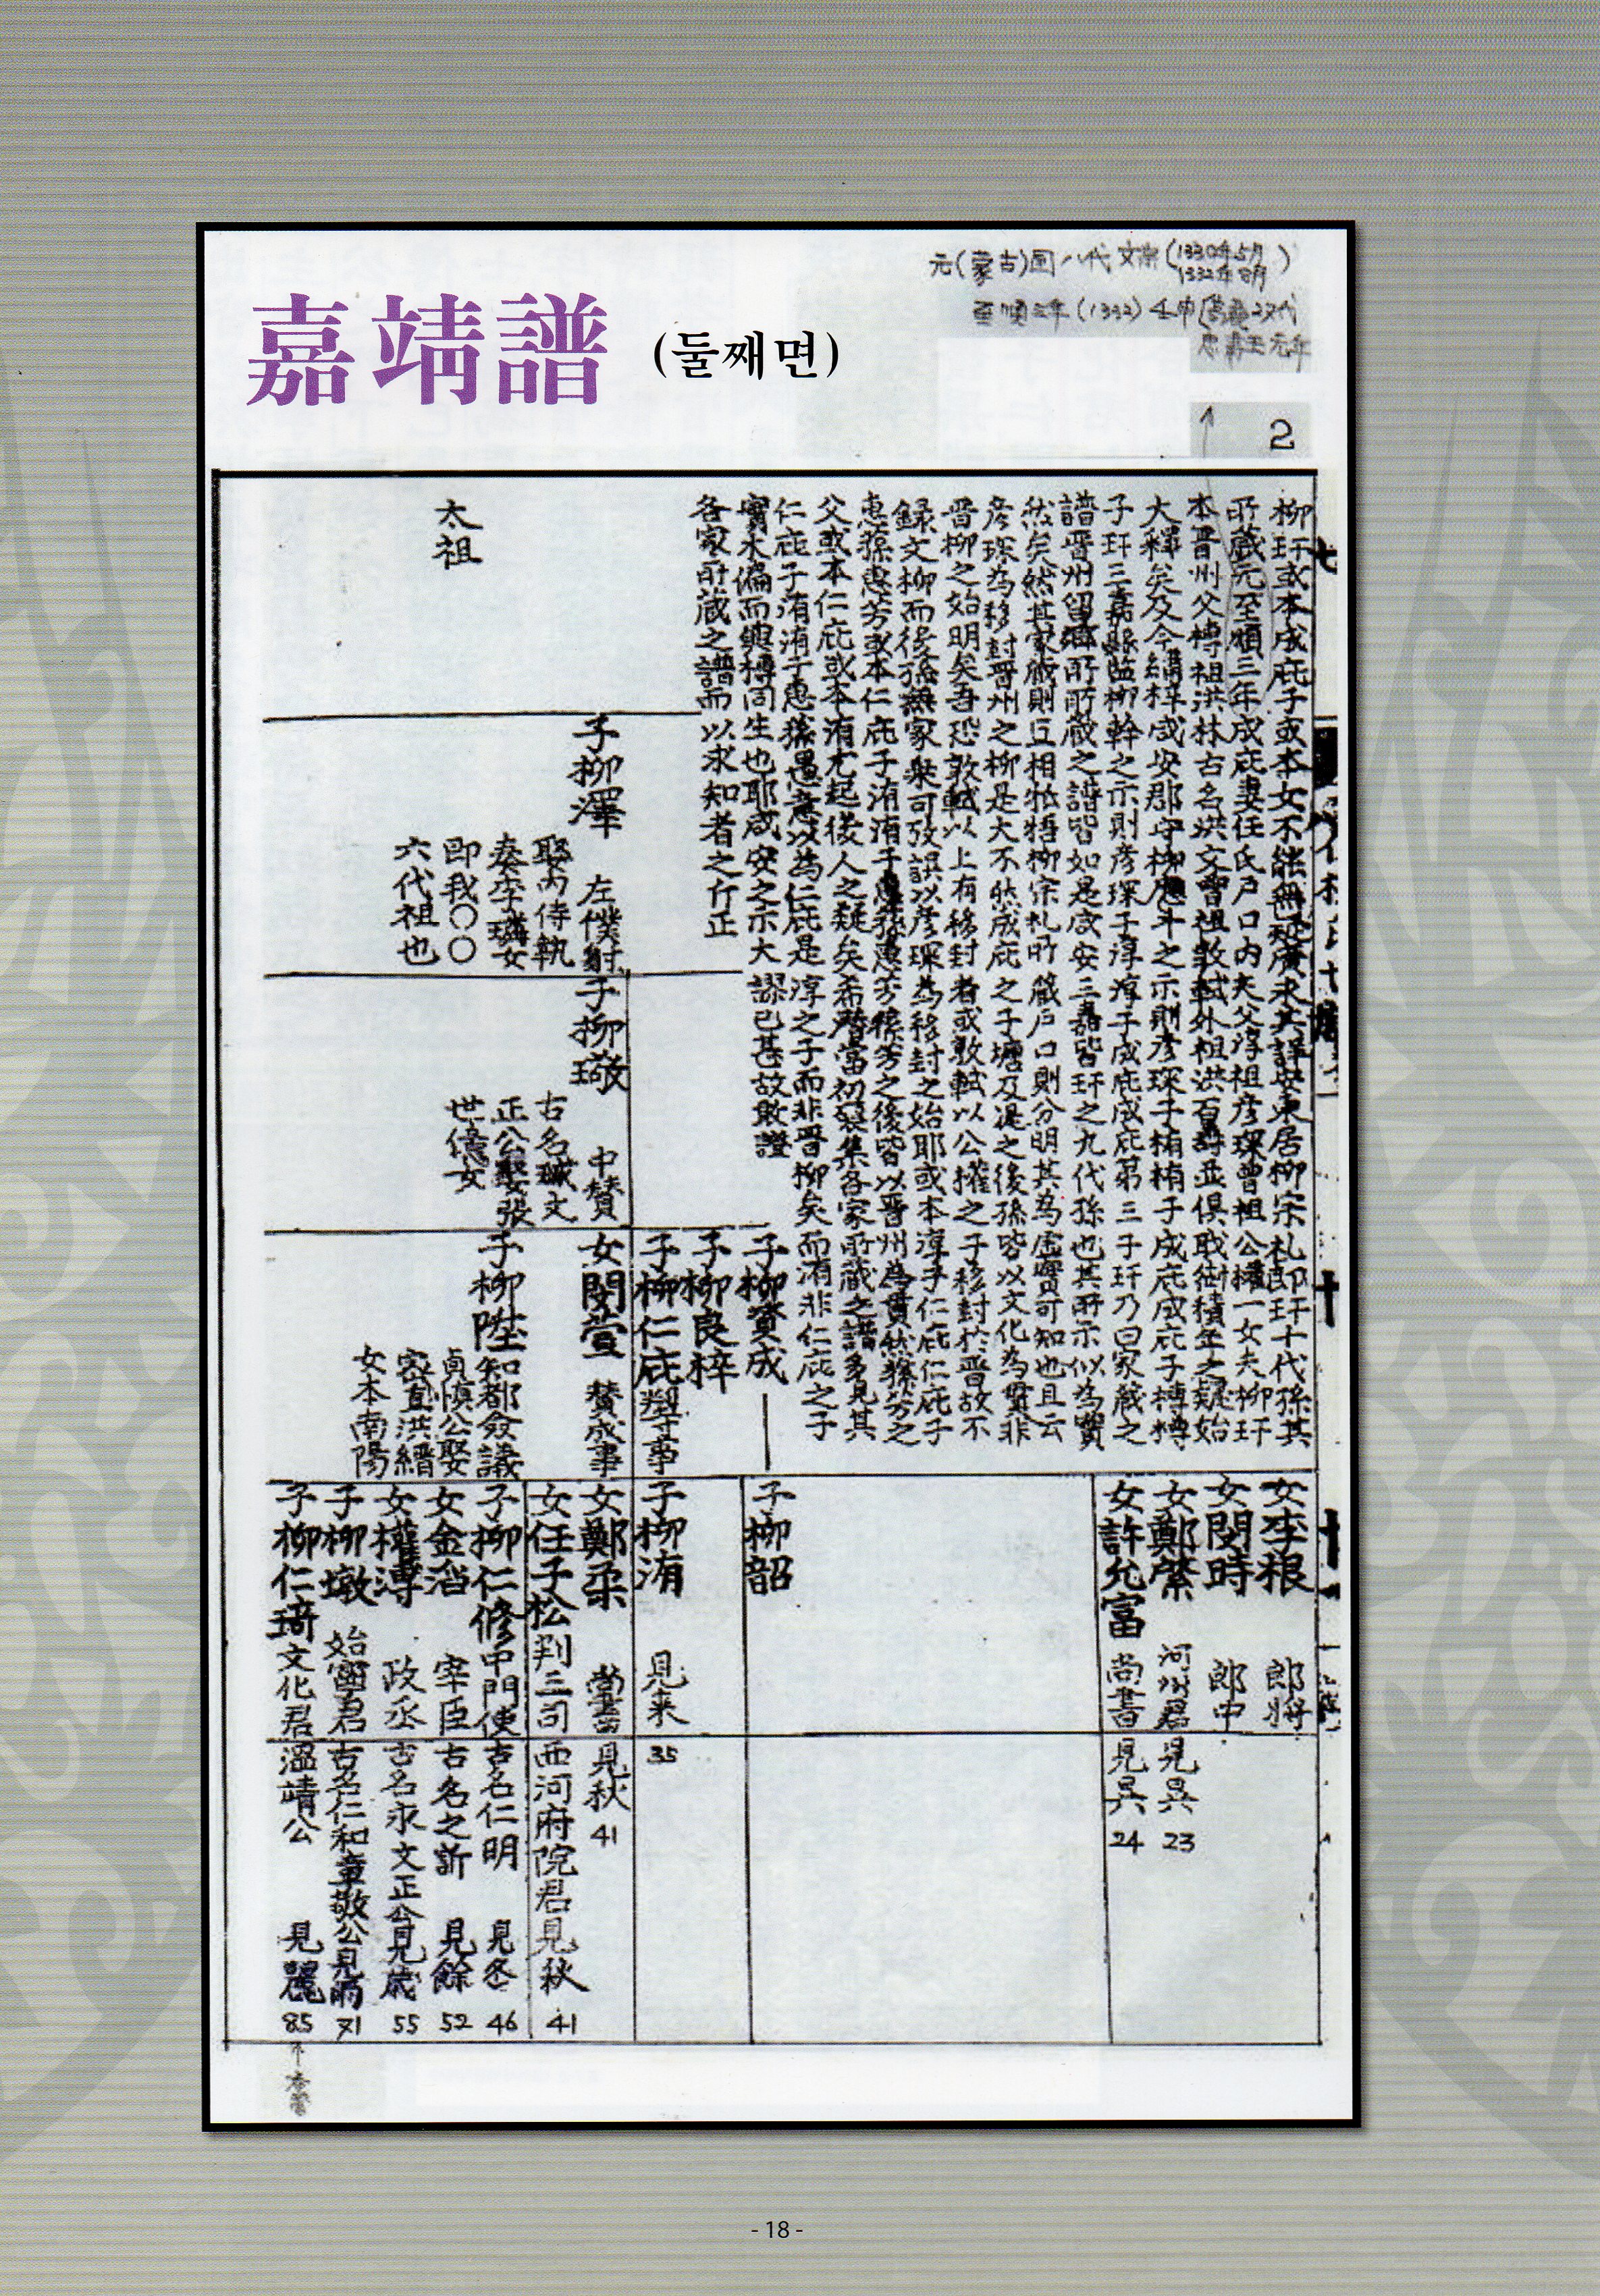 元(蒙古)国八代 文宗(1330年5月
1332年8月)
至順三年(1332)壬申
忠肅王元年
嘉靖譜 (둘째면)
2
柳玕或本成庇子或本女不能無疑廣求其詳安東居柳宗礼卽玕十代孫其
所蔵元至順三年成庇妻任氏戶口內夫父淳祖彦琛曾祖公權一女夫柳玕
本晋州父榑祖洪林古名洪文曾祖敦軾外祖洪百壽並俱戢樹積年之疑始
大釋矣及今綢梓咸安郡守柳應斗之示則彦琛子楕楕子成庇成庇子榑榑
子玕三嘉縣監柳幹之示則彦琛子淳淳子成庇成庇第三子玕乃曰家蔵之
譜晋州留鄕所所蔵之譜皆如是咸安三嘉皆玕之九代孫也其所示似為實
然矣然其家蔵則互相牴牾柳宗礼所蔵戶口則分明其為虛實可知也且云
彦琛為移封晋州之柳是大不然成庇之子塘及湜之後孫皆以文化為貫非
晋柳之始明矣吾恐敦軾以上有移封者或敦軾以公權之子移封於晋故不
録文柳而後孫無家乗可攷誤以彦琛為移封之始耶或本淳子仁庇仁庇子
惠蓀惠芳或本仁庇子洧洧子惠蓀惠芳蓀芳之後皆以晋州為貫然蓀芳之
父或本仁庇或本洧尤起後人之疑矣希潛當初裒集各家所蔵之譜多見其
仁庇子洧洧子惠蓀愚意以為仁庇是淳之子而非晋柳矣而洧非仁庇之子
實木偏而與榑同生也耶咸安之示大謬已甚故敢證
各家所蔵之譜而以求知者之斤正
太祖
子柳澤 左僕射
娶內侍執
奏李璘女
即我〇〇
六代祖也
子柳璥 中賛
古名瑊文
正公娶張
世億女
子柳資成
子柳良梓
子柳仁庇 判事
女閔萱 賛成事
子柳陞 知都僉議
貞愼公娶
密直洪縉
女本南陽
女李根 郎將
女閔時 郎中
女鄭縈 河城君 見呉 23
女許允富 尚書 見呉 24
子柳韶
子柳洧 見来 35
女鄭柔 尚書 見秋 41
女任子松 判三司 西河府院君 見秋 41
子柳仁修 中門使 古名仁明 見冬 46
女金滔 宰臣 古名之訢 見餘 52
女權溥 政丞 古名永文正公 見歲 55
子柳墩 始寧君 古名仁和章敬公 見 71
子柳仁琦 文化君 溫靖公 見麗 85
- 18 -